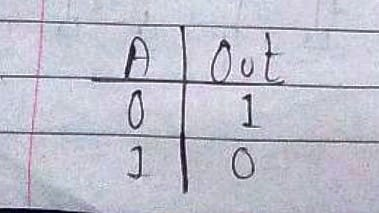 A Out
0 1
1 0